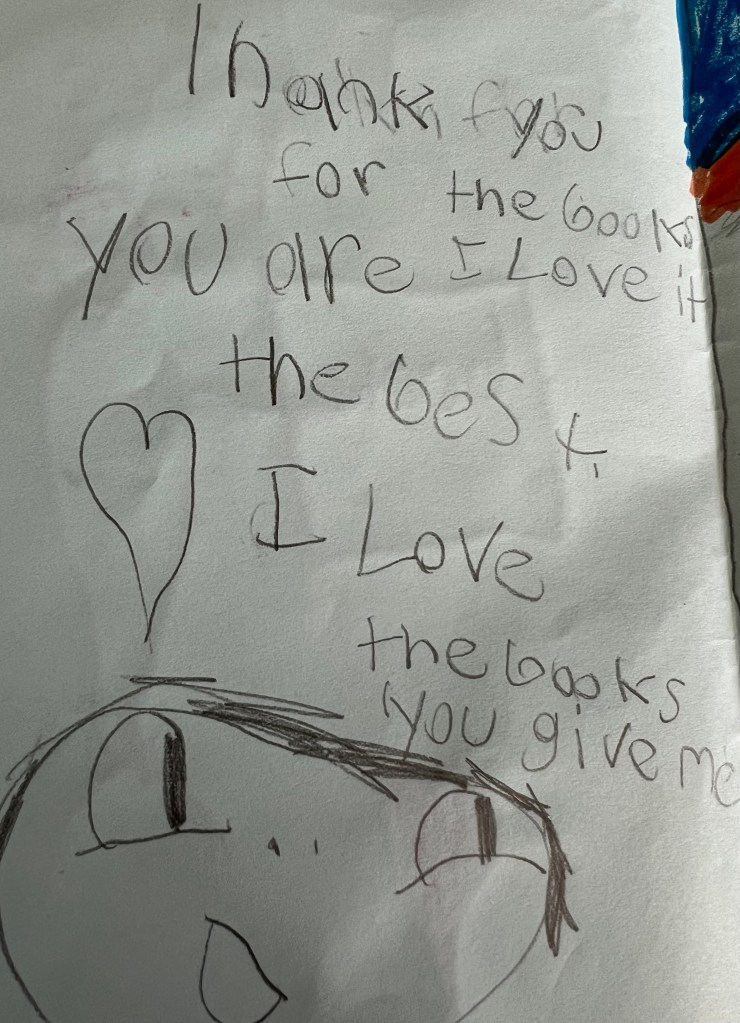 Thank you
for the books
you are I Love it
the best.
I Love
the books
you give me